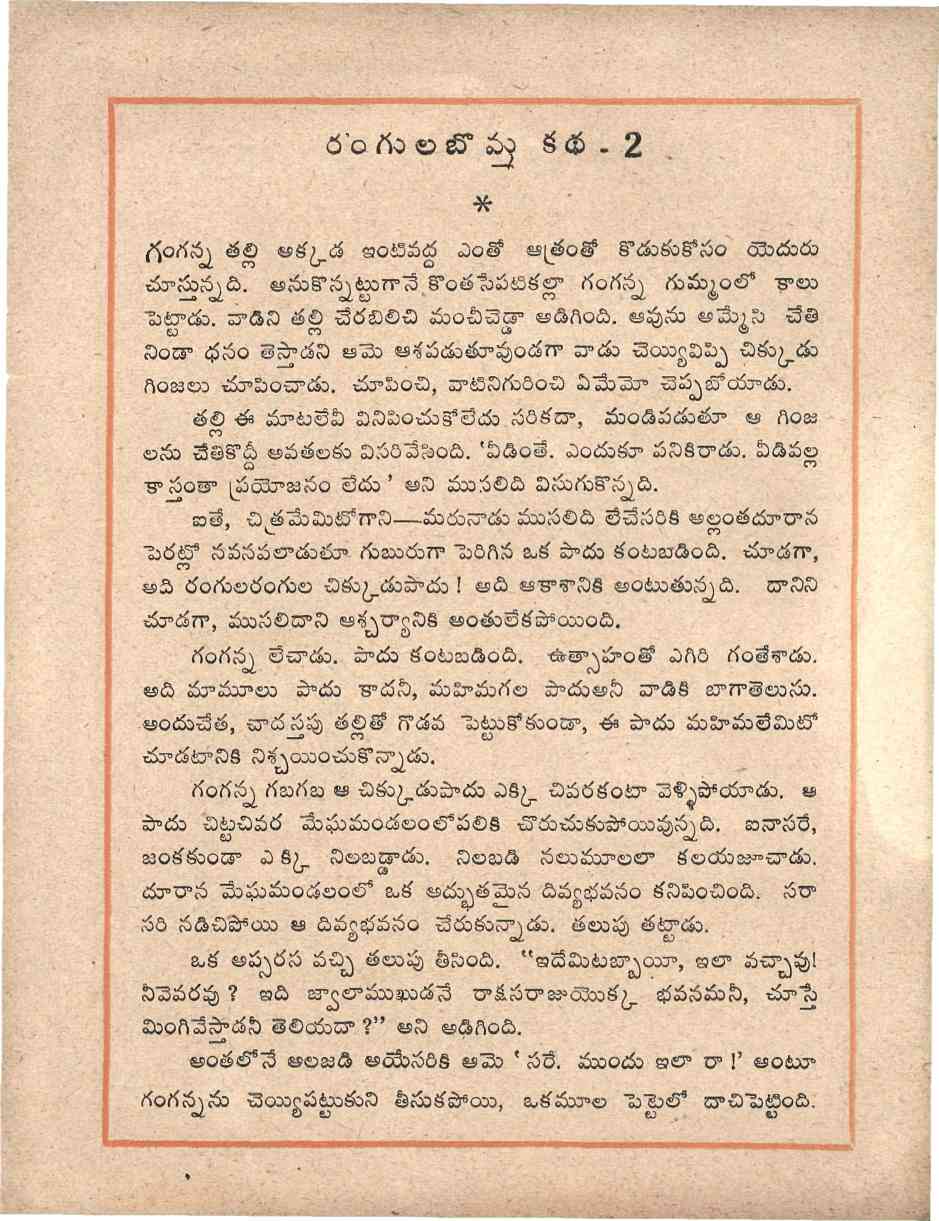 రంగులబొమ్మ కథ - 2
*
గంగన్న తల్లి అక్కడ ఇంటివద్ద ఎంతో ఆత్రంతో కొడుకుకోసం యెదురు
చూస్తున్నది. అనుకొన్నట్టుగానే కొంతసేపటికల్లా గంగన్న గుమ్మంలో కాలు
పెట్టాడు. వాడిని తల్లి చేరబిలిచి మంచీచెడ్డా అడిగింది. ఆవును అమ్మేసి చేతి
నిండా ధనం తెస్తాడని ఆమె ఆశపడుతూవుండగా వాడు చెయ్యివిప్పి చిక్కుడు
గింజలు చూపించాడు. చూపించి, వాటినిగురించి ఏమేమో చెప్పబోయాడు.
తల్లి ఈ మాటలేవీ వినిపించుకోలేదు సరికదా, మండిపడుతూ ఆ గింజ
లను చేతికొద్దీ అవతలకు విసరివేసింది. 'వీడింతే. ఎందుకూ పనికిరాడు. వీడివల్ల
కాస్తంతా ప్రయోజనం లేదు' అని ముసలిది విసుగుకొన్నది.
ఐతే, చిత్రమేమిటోగాని—మరునాడు ముసలిది లేచేసరికి అల్లంతదూరాన
పెరట్లో నవనవలాడుతూ గుబురుగా పెరిగిన ఒక పాదు కంటబడింది. చూడగా,
అవి రంగులరంగుల చిక్కుడుపాదు! అది ఆకాశానికి అంటుతున్నది. దానిని
చూడగా, ముసలిదాని ఆశ్చర్యానికి అంతులేకపోయింది.
గంగన్న లేచాడు. పాదు కంటబడింది. ఉత్సాహంతో ఎగిరి గంతేశాడు.
అది మామూలు పాదు కాదనీ, మహిమగల పాదుఅనీ వాడికి బాగాతెలుసు.
అందుచేత, చాదస్తపు తల్లితో గొడవ పెట్టుకోకుండా, ఈ పాదు మహిమలేమిటో
చూడటానికి నిశ్చయించుకొన్నాడు.
గంగన్న గబగబ ఆ చిక్కుడుపాదు ఎక్కి చివరకంటా వెళ్ళిపోయాడు. ఆ
పాదు చిట్టచివర మేఘమండలంలోపలికి చొరుచుకుపోయివున్నది. ఐనాసరే,
జంకకుండా ఎక్కి నిలబడ్డాడు. నిలబడి నలుమూలలా కలయజూచాడు.
దూరాన మేఘమండలంలో ఒక అద్భుతమైన దివ్యభవనం కనిపించింది. సరా
సరి నడిచిపోయి ఆ దివ్యభవనం చేరుకున్నాడు. తలుపు తట్టాడు.
ఒక అప్సరస వచ్చి తలుపు తీసింది. "ఇదేమిటబ్బాయీ, ఇలా వచ్చావు!
నీవెవరవు? ఇది జ్వాలాముఖుడనే రాక్షసరాజుయొక్క భవనమనీ, చూస్తే
మింగివేస్తాడనీ తెలియదా?" అని అడిగింది.
అంతలోనే అలజడి అయేసరికి ఆమె 'సరే. ముందు ఇలా రా!' అంటూ
గంగన్నను చెయ్యిపట్టుకుని తీసుకపోయి, ఒకమూల పెట్టెలో దాచిపెట్టింది.